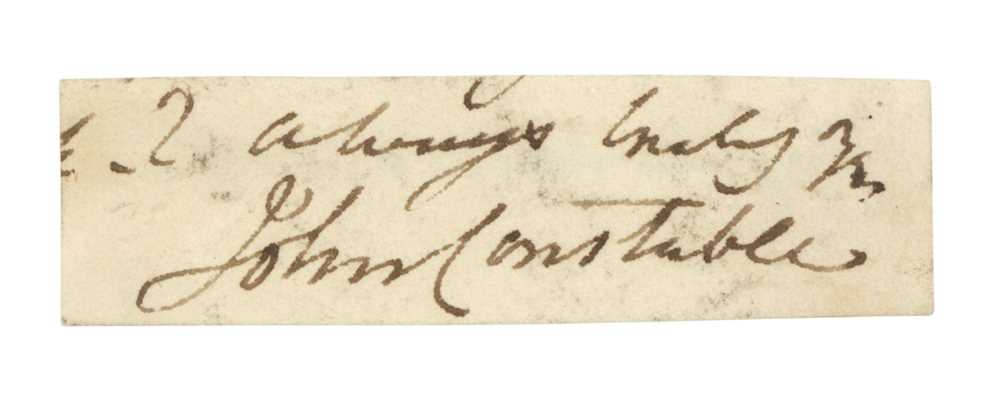 I always truly yrs
John Constable